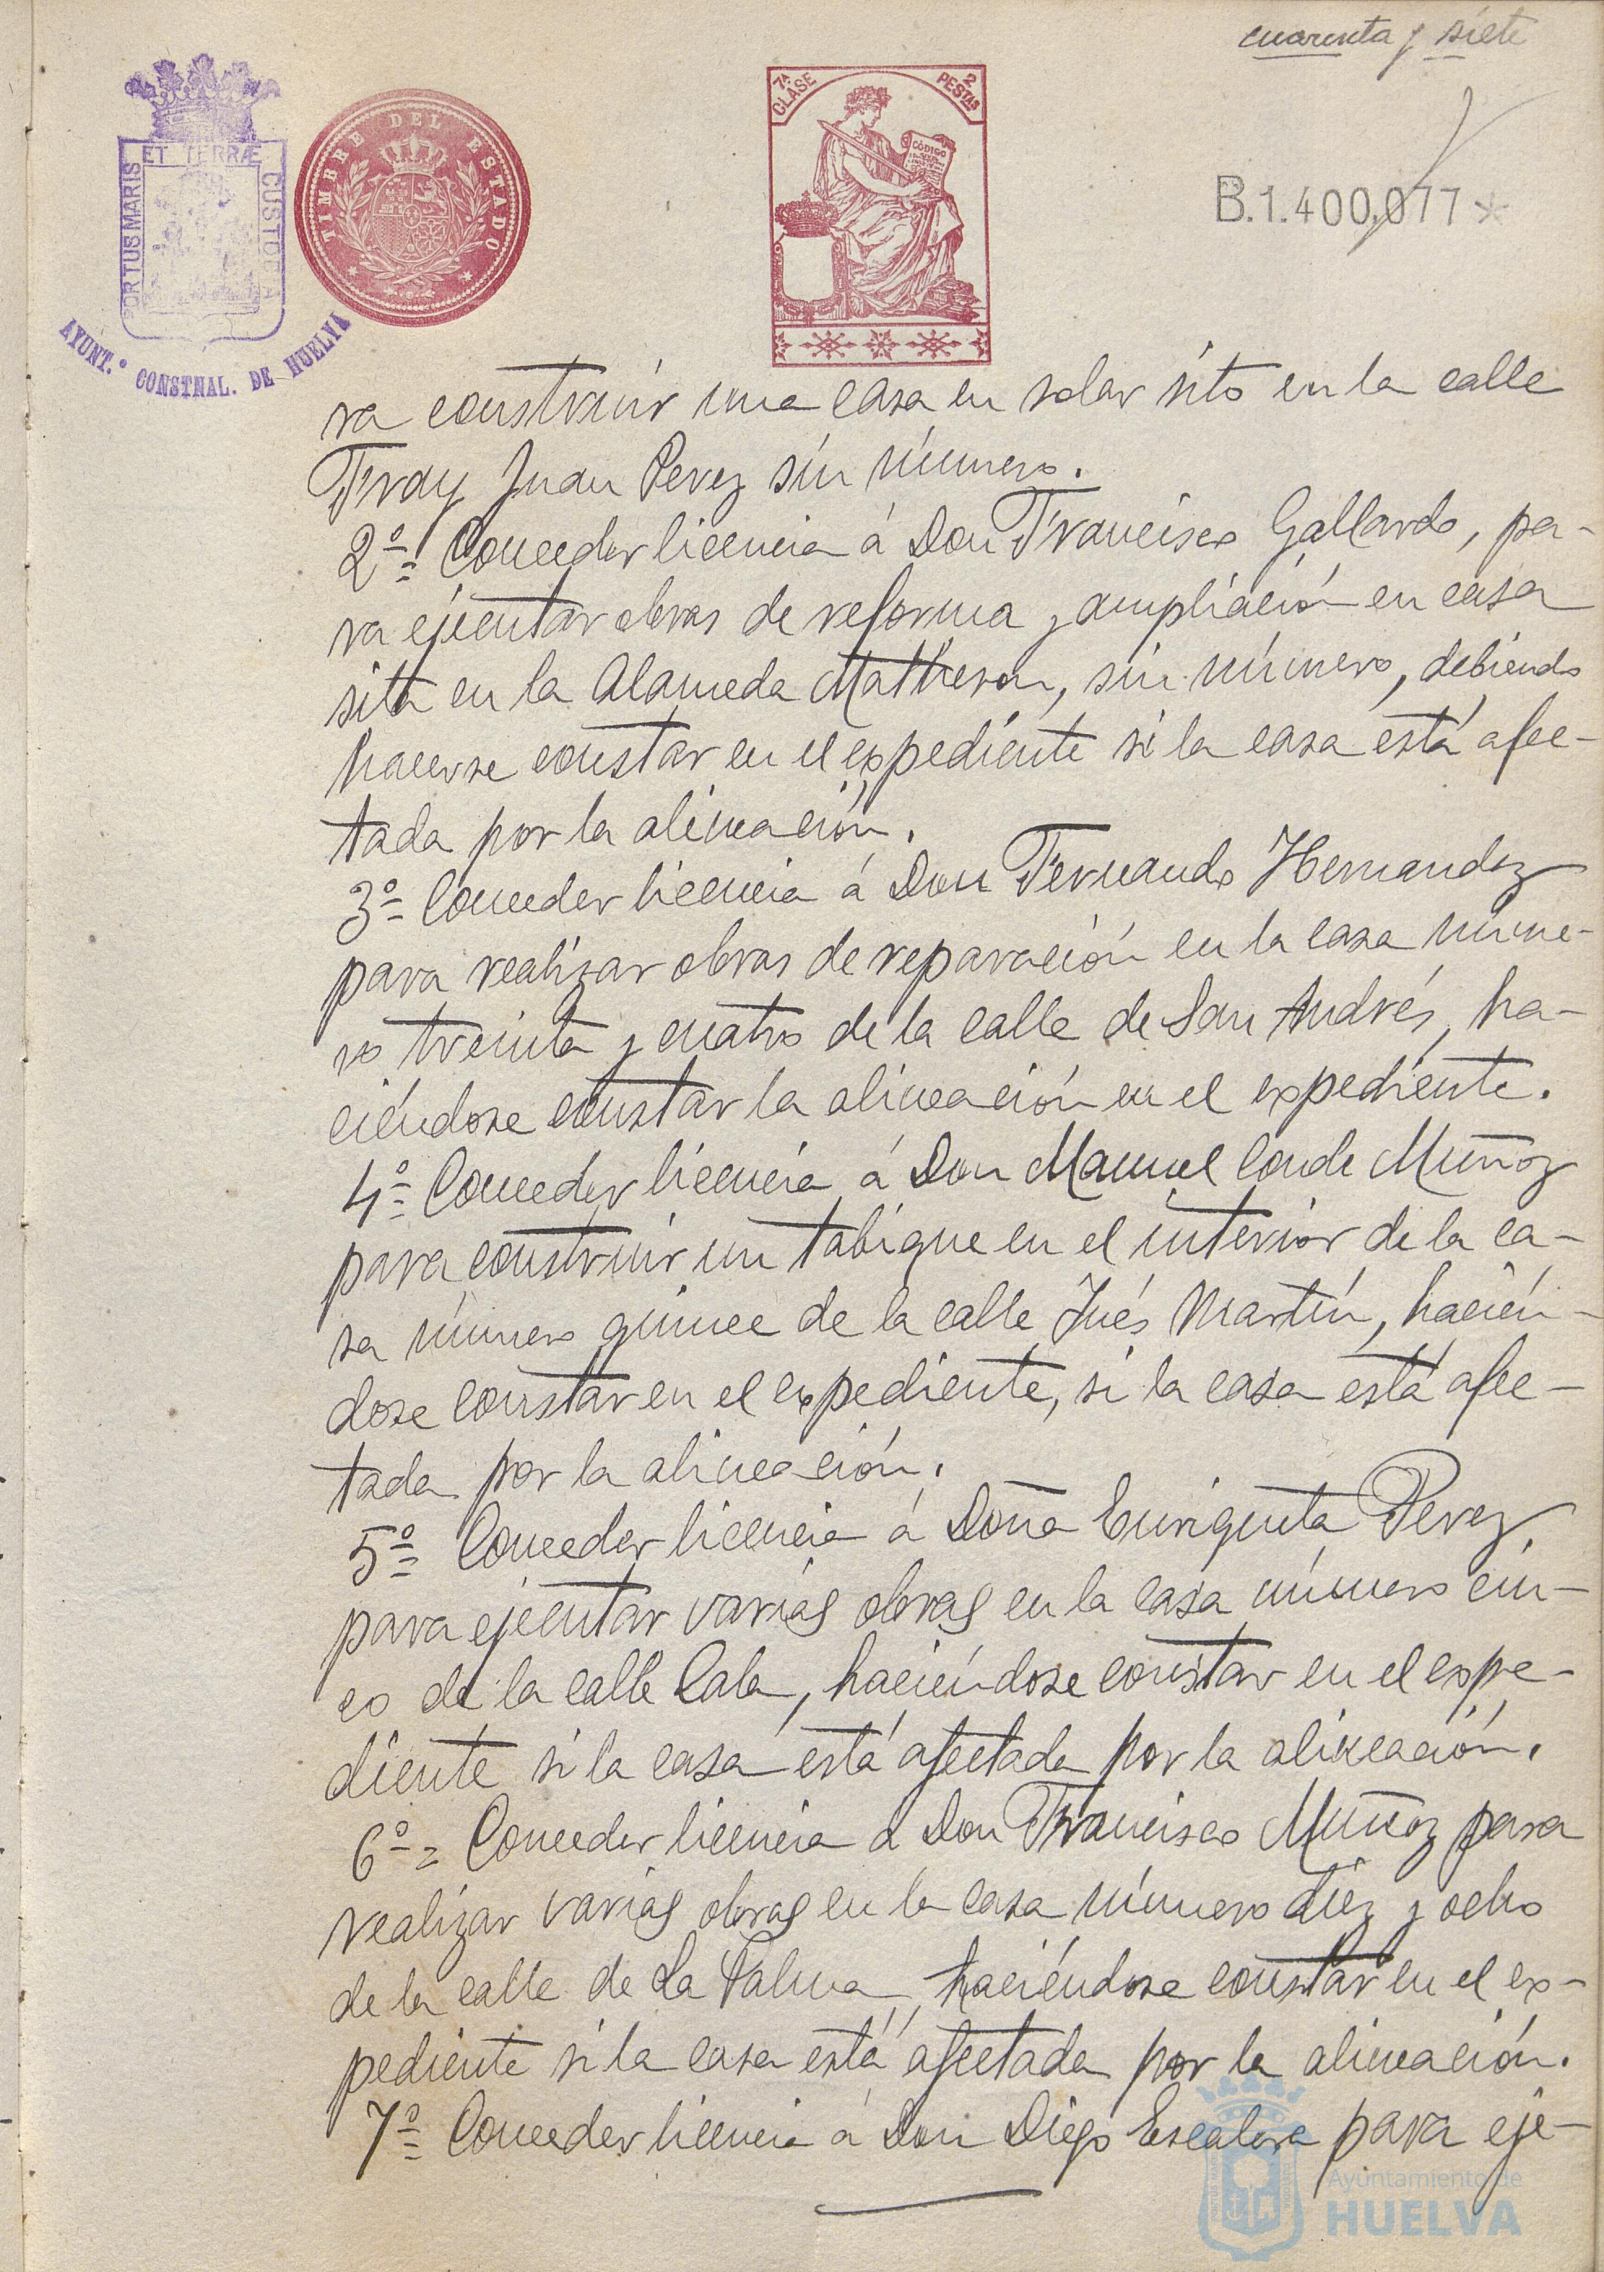 cuarenta y siete
7ª CLASE
2 PESTAS
CÓDIGO
TIMBRE DEL ESTADO
PORTUS MARIS ET TERRÆ CUSTODIA
AYUNT.º CONSTNAL. DE HUELVA
B.1.400,077*
ra construir una casa en solar sito en la calle
Fray Juan Perez sin número.
2º= Conceder licencia á Don Francisco Gallardo, pa-
ra ejecutar obras de reforma y ampliación en casa
sita en la Alameda Matheson, sin número, debiendo
hacerse constar en el expediente si la casa está afec-
tada por la alineación.
3º= Conceder licencia á Don Fernando Hernandez
para realizar obras de reparación en la casa núme-
ro treinta y cuatro de la calle de San Andrés, ha-
ciéndose constar la alineación en el expediente.
4º= Conceder licencia á Don Manuel Conde Muñoz
para construir un tabique en el interior de la ca-
sa número quince de la calle Inés Martín, hacién-
dose constar en el expediente, si la casa está afec-
tada por la alineación.
5º= Conceder licencia á Doña Enriqueta Perez,
para ejecutar varias obras en la casa número cin-
co de la calle Cala, haciéndose constar en el expe-
diente si la casa está afectada por la alineación.
6º= Conceder licencia á Don Francisco Muñoz para
realizar varias obras en la casa número diez y ocho
de la calle de La Palma, haciéndose constar en el ex-
pediente si la casa está afectada por la alineación.
7º= Conceder licencia á Don Diego Escalera para eje-
Ayuntamiento de
HUELVA